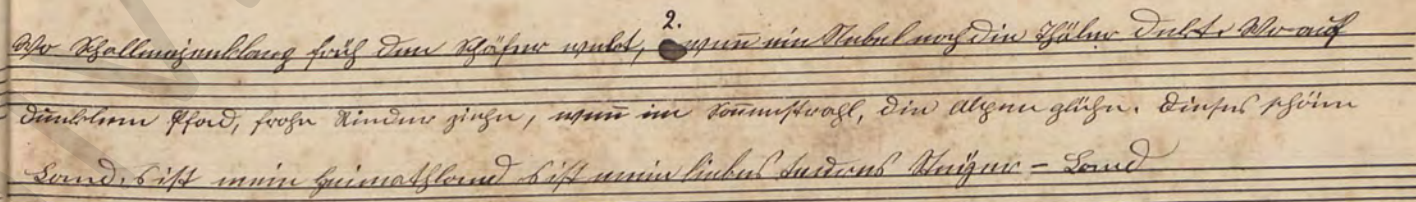 2.
Wo Schallmeienklang früh den Schäfer wekt, wenn ein Nebel noch die Thäler dekt. Wo auf
dunklem Pfad, frohe Rinder ziehn, wenn im Sonnenstrahl, die Alpen glühn. Dieses schöne
Land, s ist mein Heimathland s ist mein liebes teures Steyer=Land